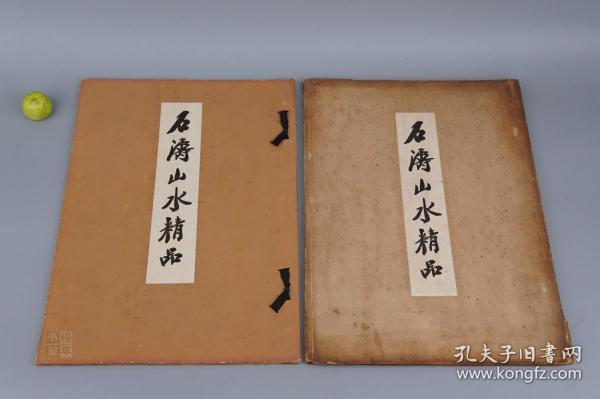 石濤山水精品
石濤山水精品
孔夫子旧書网
www.kongfz.com